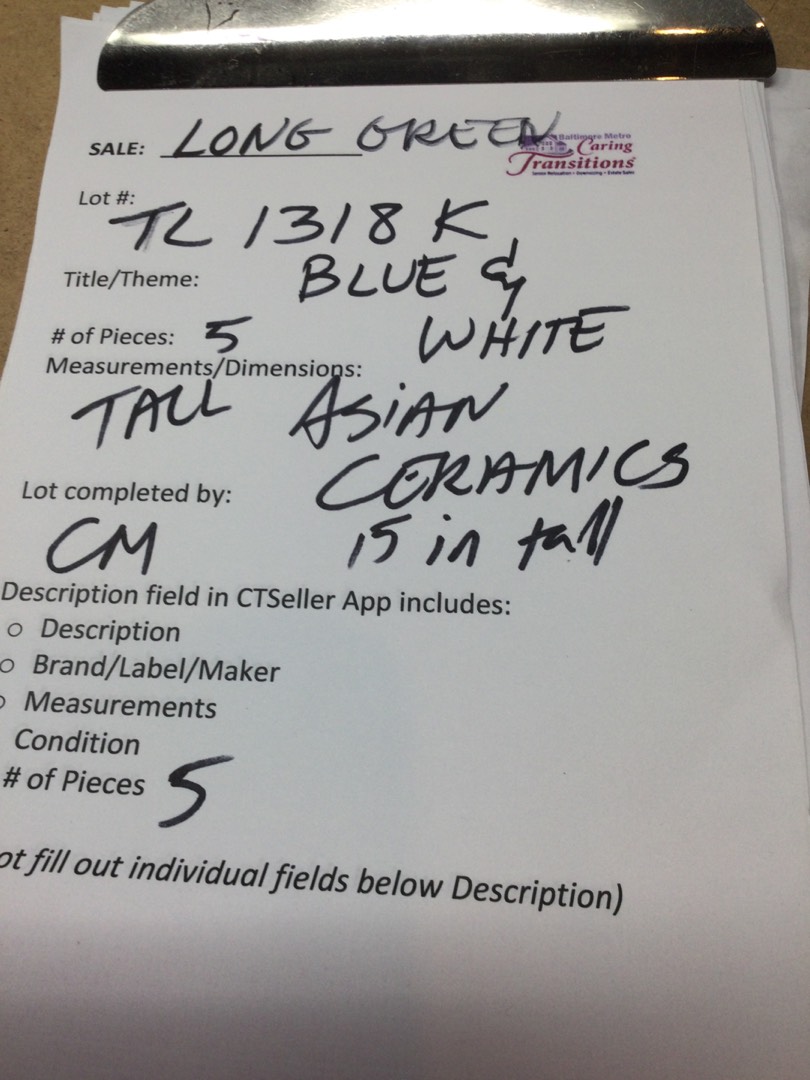 SALE: LONG GREEN
Baltimore Metro
Caring
Transitions
Senior Relocation • Downsizing • Estate Sales
Lot #:
TL 1318 K
Title/Theme: BLUE &
# of Pieces: 5 WHITE
Measurements/Dimensions:
TALL ASIAN
CERAMICS
Lot completed by:
CM 15 in tall
Description field in CTSeller App includes:
○ Description
○ Brand/Label/Maker
○ Measurements
Condition
# of Pieces 5
ot fill out individual fields below Description)